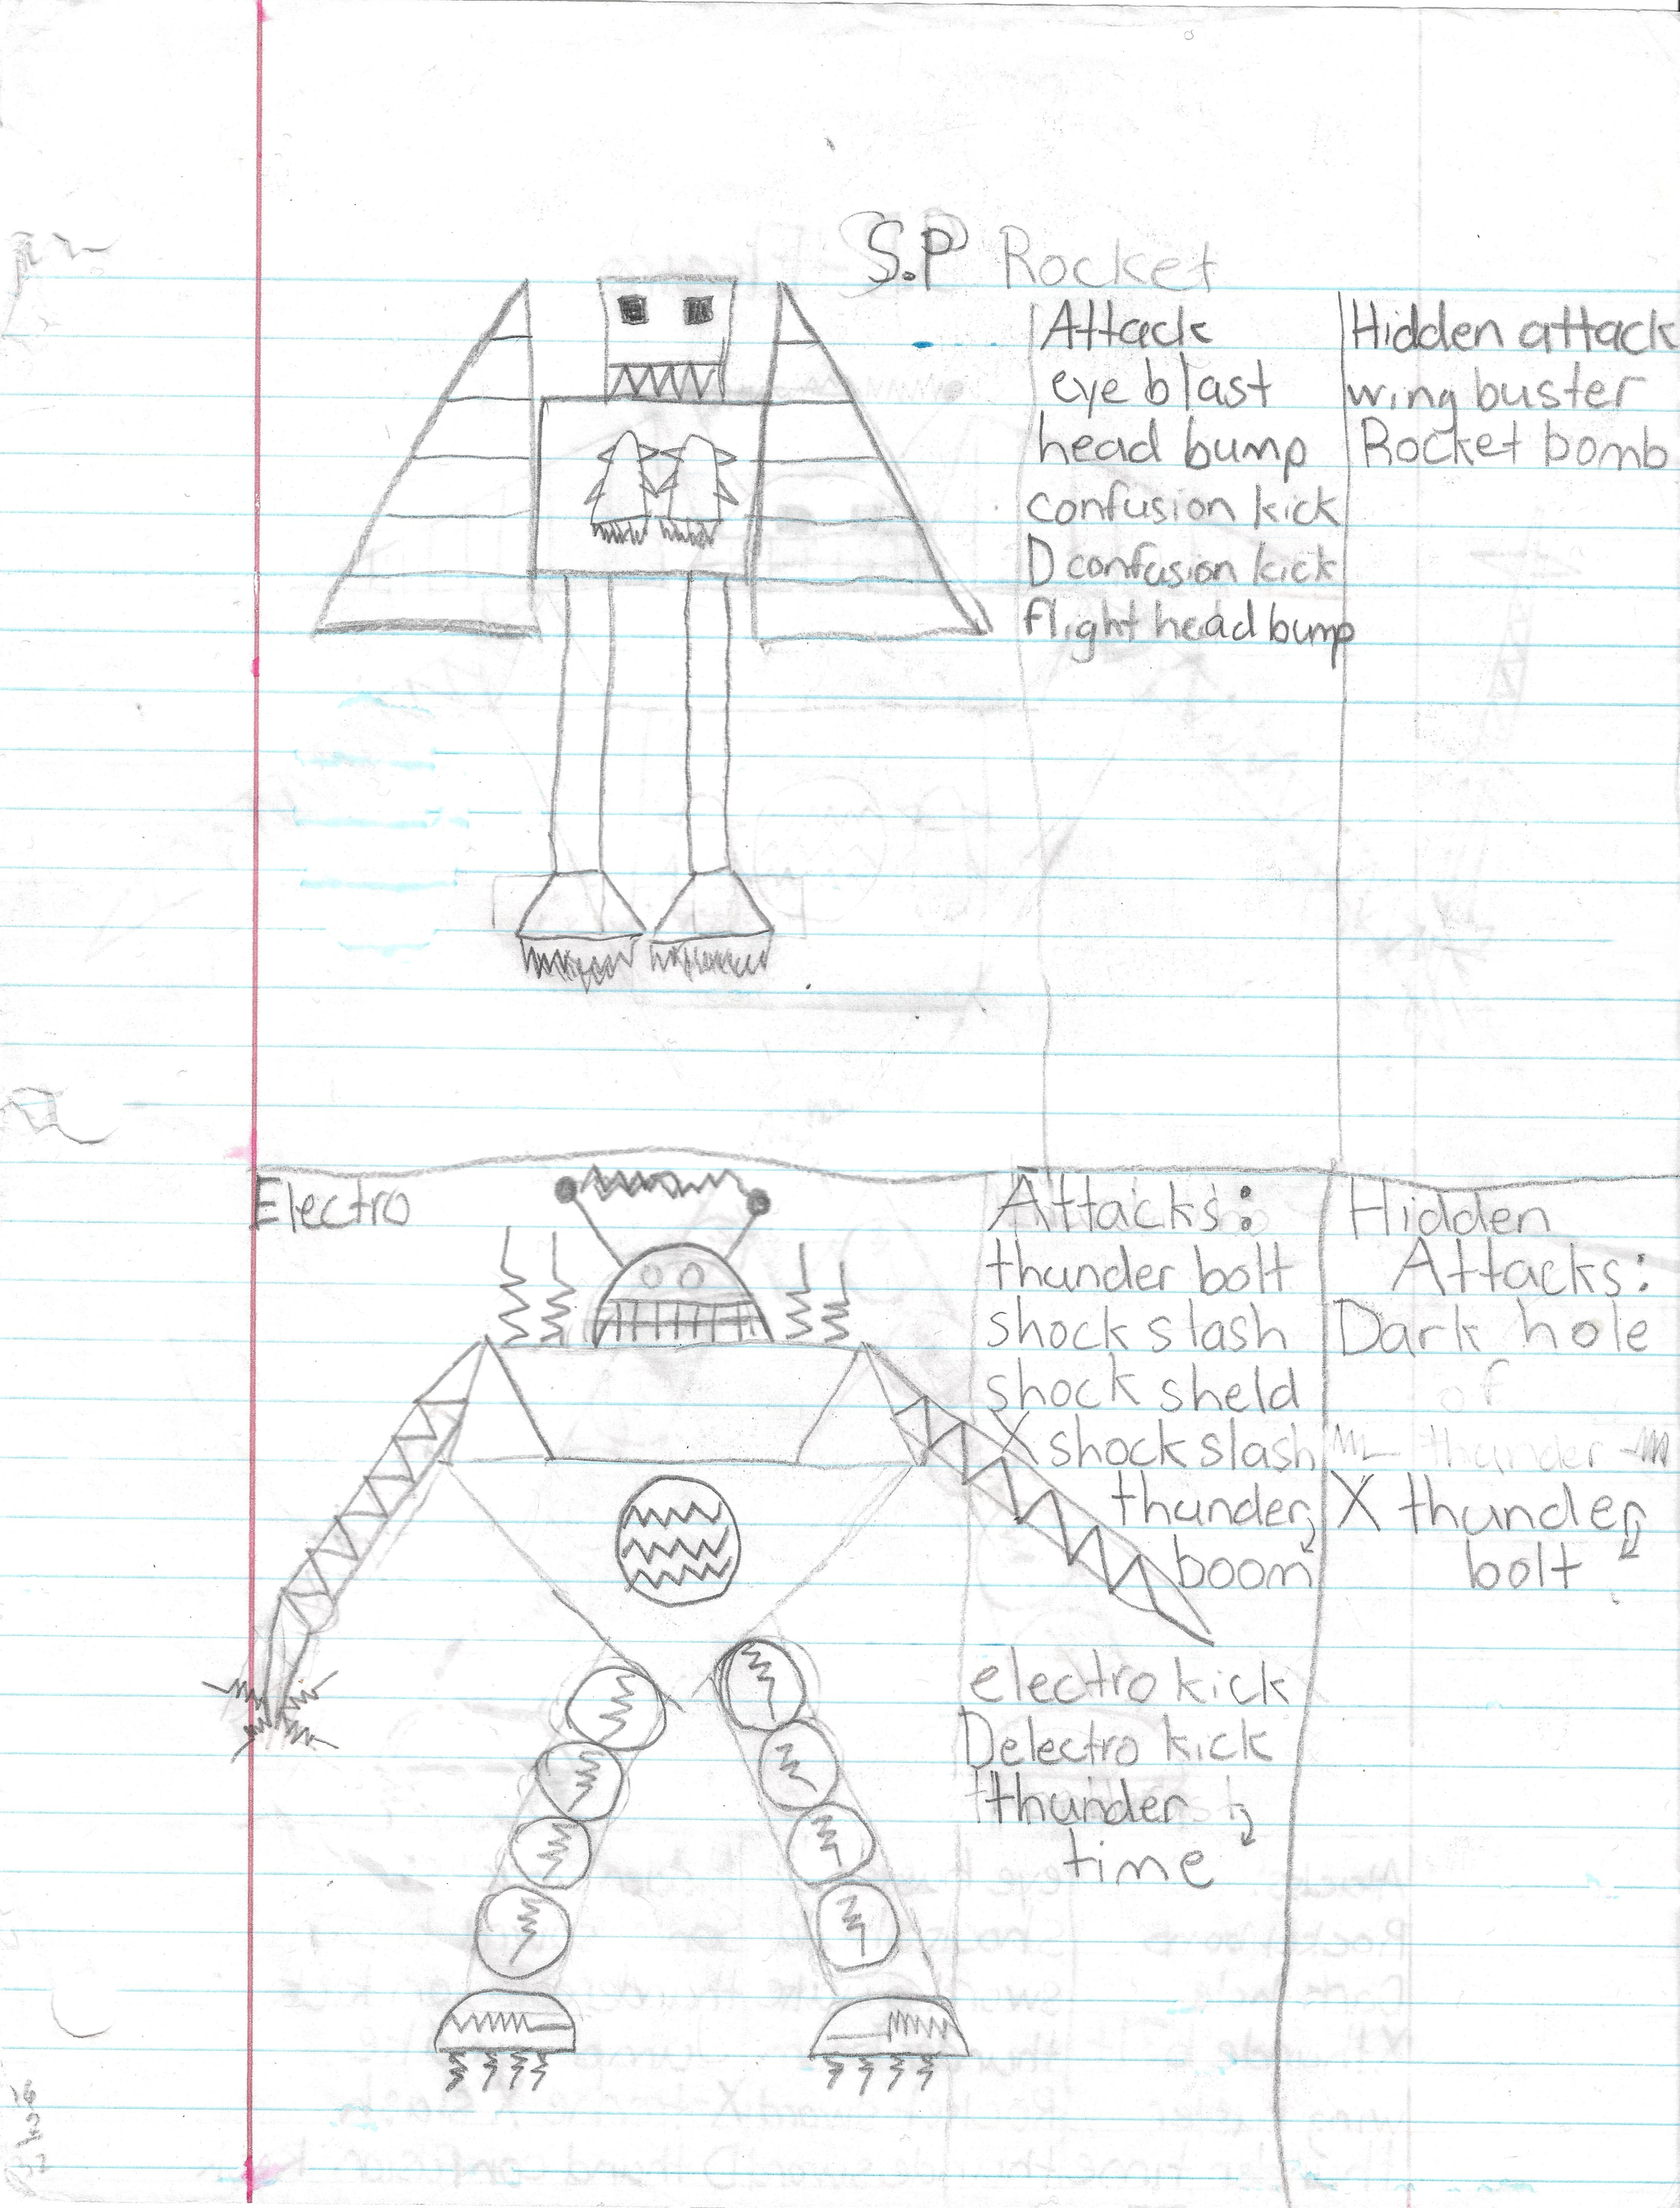 S.P Rocket
Attack
eye blast
head bump
confusion kick
D confusion kick
flight head bump
Hidden attack
wing buster
Rocket bomb
Electro
Attacks:
thunder bolt
shock slash
shock sheld
X shock slash
thunder
boom
electro kick
D electro kick
thunder
time
Hidden
Attacks:
Dark hole
of
thunder
X thunder
bolt